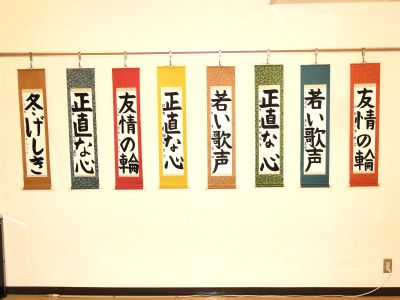 冬げしき
正直な心
友情の輪
正直な心
若い歌声
正直な心
若い歌声
友情の輪